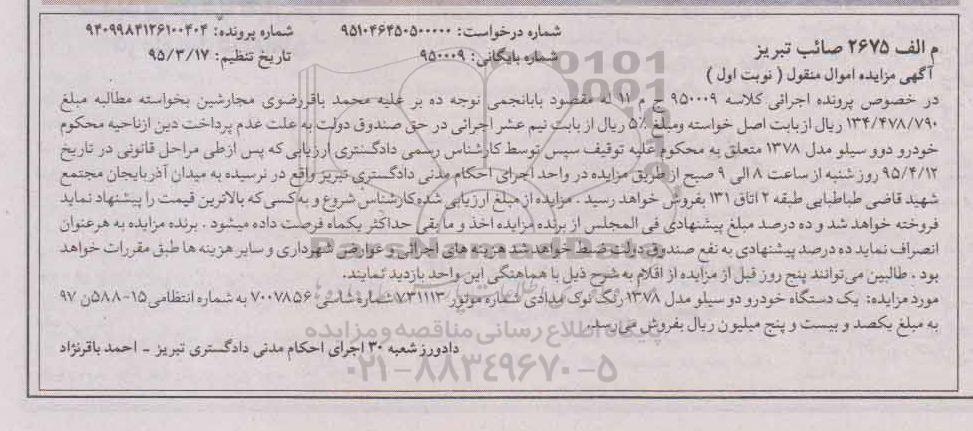 م الف ۲۶۷۵ صائب تبریز
شماره درخواست: ۹۵۱۰۴۶۴۵۰۵۰۰۰۰۰
شماره پرونده: ۹۴۰۹۹۸۴۱۲۶۱۰۰۴۰۴
شماره بایگانی: ۹۵۰۰۰۹
تاریخ تنظیم: ۹۵/۳/۱۷
آگهی مزایده اموال منقول ( نوبت اول )
در خصوص پرونده اجرائی کلاسه ۹۵۰۰۰۹ ج م ۱۱ له مقصود بابانجمی توجه ده بر علیه محمد باقررضوی مجارشین بخواسته مطالبه مبلغ
۱۳۴/۴۷۸/۷۹۰ ریال ازبابت اصل خواسته ومبلغ ۵٪ ریال از بابت نیم عشر اجرائی در حق صندوق دولت به علت عدم پرداخت دین ازناحیه محکوم
خودرو دوو سیلو مدل ۱۳۷۸ متعلق به محکوم علیه توقیف سپس توسط کارشناس رسمی دادگستری ارزیابی که پس ازطی مراحل قانونی در تاریخ
۹۵/۴/۱۲ روز شنبه از ساعت ۸ الی ۹ صبح از طریق مزایده در واحد اجرای احکام مدنی دادگستری تبریز واقع در نرسیده به میدان آذربایجان مجتمع
شهید قاضی طباطبایی طبقه ۲ اتاق ۱۳۱ بفروش خواهد رسید . مزایده از مبلغ ارزیابی شده کارشناس شروع و به کسی که بالاترین قیمت را پیشنهاد نماید
فروخته خواهد شد و ده درصد مبلغ پیشنهادی فی المجلس از برنده مزایده اخذ و ما بقی حداکثر یکماه فرصت داده میشود . برنده مزایده به هرعنوان
انصراف نماید ده درصد پیشنهادی به نفع صندوق دولت ضبط خواهد شد هزینه های اجرائی و عوارض شهرداری و سایر هزینه ها طبق مقررات خواهد
بود . طالبین می‌توانند پنج روز قبل از مزایده از اقلام به شرح ذیل با هماهنگی این واحد بازدید نمایند.
مورد مزایده: یک دستگاه خودرو دو سیلو مدل ۱۳۷۸ رنگ نوک مدادی شماره موتور ۷۳۱۱۱۳ شماره شاسی ۷۰۰۷۸۵۶ به شماره انتظامی ۱۵-۵۸۸ن ۹۷
به مبلغ یکصد و بیست و پنج میلیون ریال بفروش می‌رسد.
دادورز شعبه ۳۰ اجرای احکام مدنی دادگستری تبریز - احمد باقرنژاد
پایگاه اطلاع رسانی مناقصه و مزایده
۰۲۱-۸۸۳۴۹۶۷۰-۵